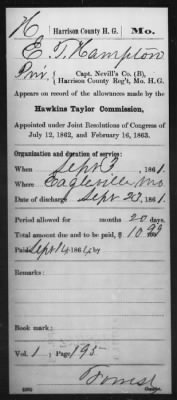 H Harrison County H. G. Mo.
E. T. Hampton
Pvt. Capt. Nevill's Co. (B),
Harrison County Reg't, Mo. H. G.
Appears on record of the allowances made by the
Hawkins Taylor Commission,
Appointed under Joint Resolutions of Congress of
July 12, 1862, and February 16, 1863.
Organization and duration of service:
When Sept 3, 1861.
Where Eagleville Mo
Date of discharge Sept 23, 1861.
Period allowed for months 20 days.
Total amount due and to be paid, $ 10
Paid 186, by
Remarks:
Book mark:
Vol. 1; Page, 195
Copyist.